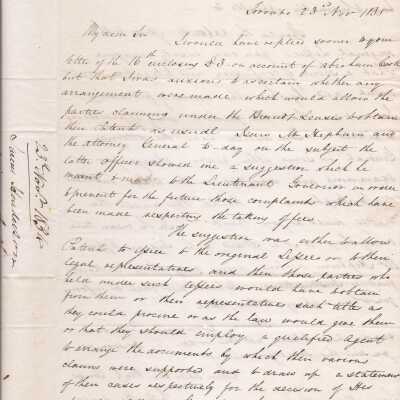 Toronto 23rd Nov 183
My dear Sir I would have replied sooner to your
letter of the 16th enclosing £3 on account of Abraham
but that I was anxious to ascertain whether any
arrangement were made which would allow the
parties claiming under the Leases to obtain
their Patents as usual I saw Mr Hepburn and
the Attorney General to-day on the subject the
latter officer showed me a suggestion which he
meant to the Lieutenant Governor in order
to prevent for the future those complaints which have
been made respecting the taking of fees.
The suggestion was either to allow
Patents to issue to the original Lessee or to their
legal representatives and then those parties who
held under such lessees would have to obtain
from them or their representatives such title as
they could procure or as the law would give them
or that they should employ a qualified Agent
to arrange the documents by which their various
claims were supported and to draw up a statement
of their cases respectively for the decision of Her
23rd Nov
James Henderson